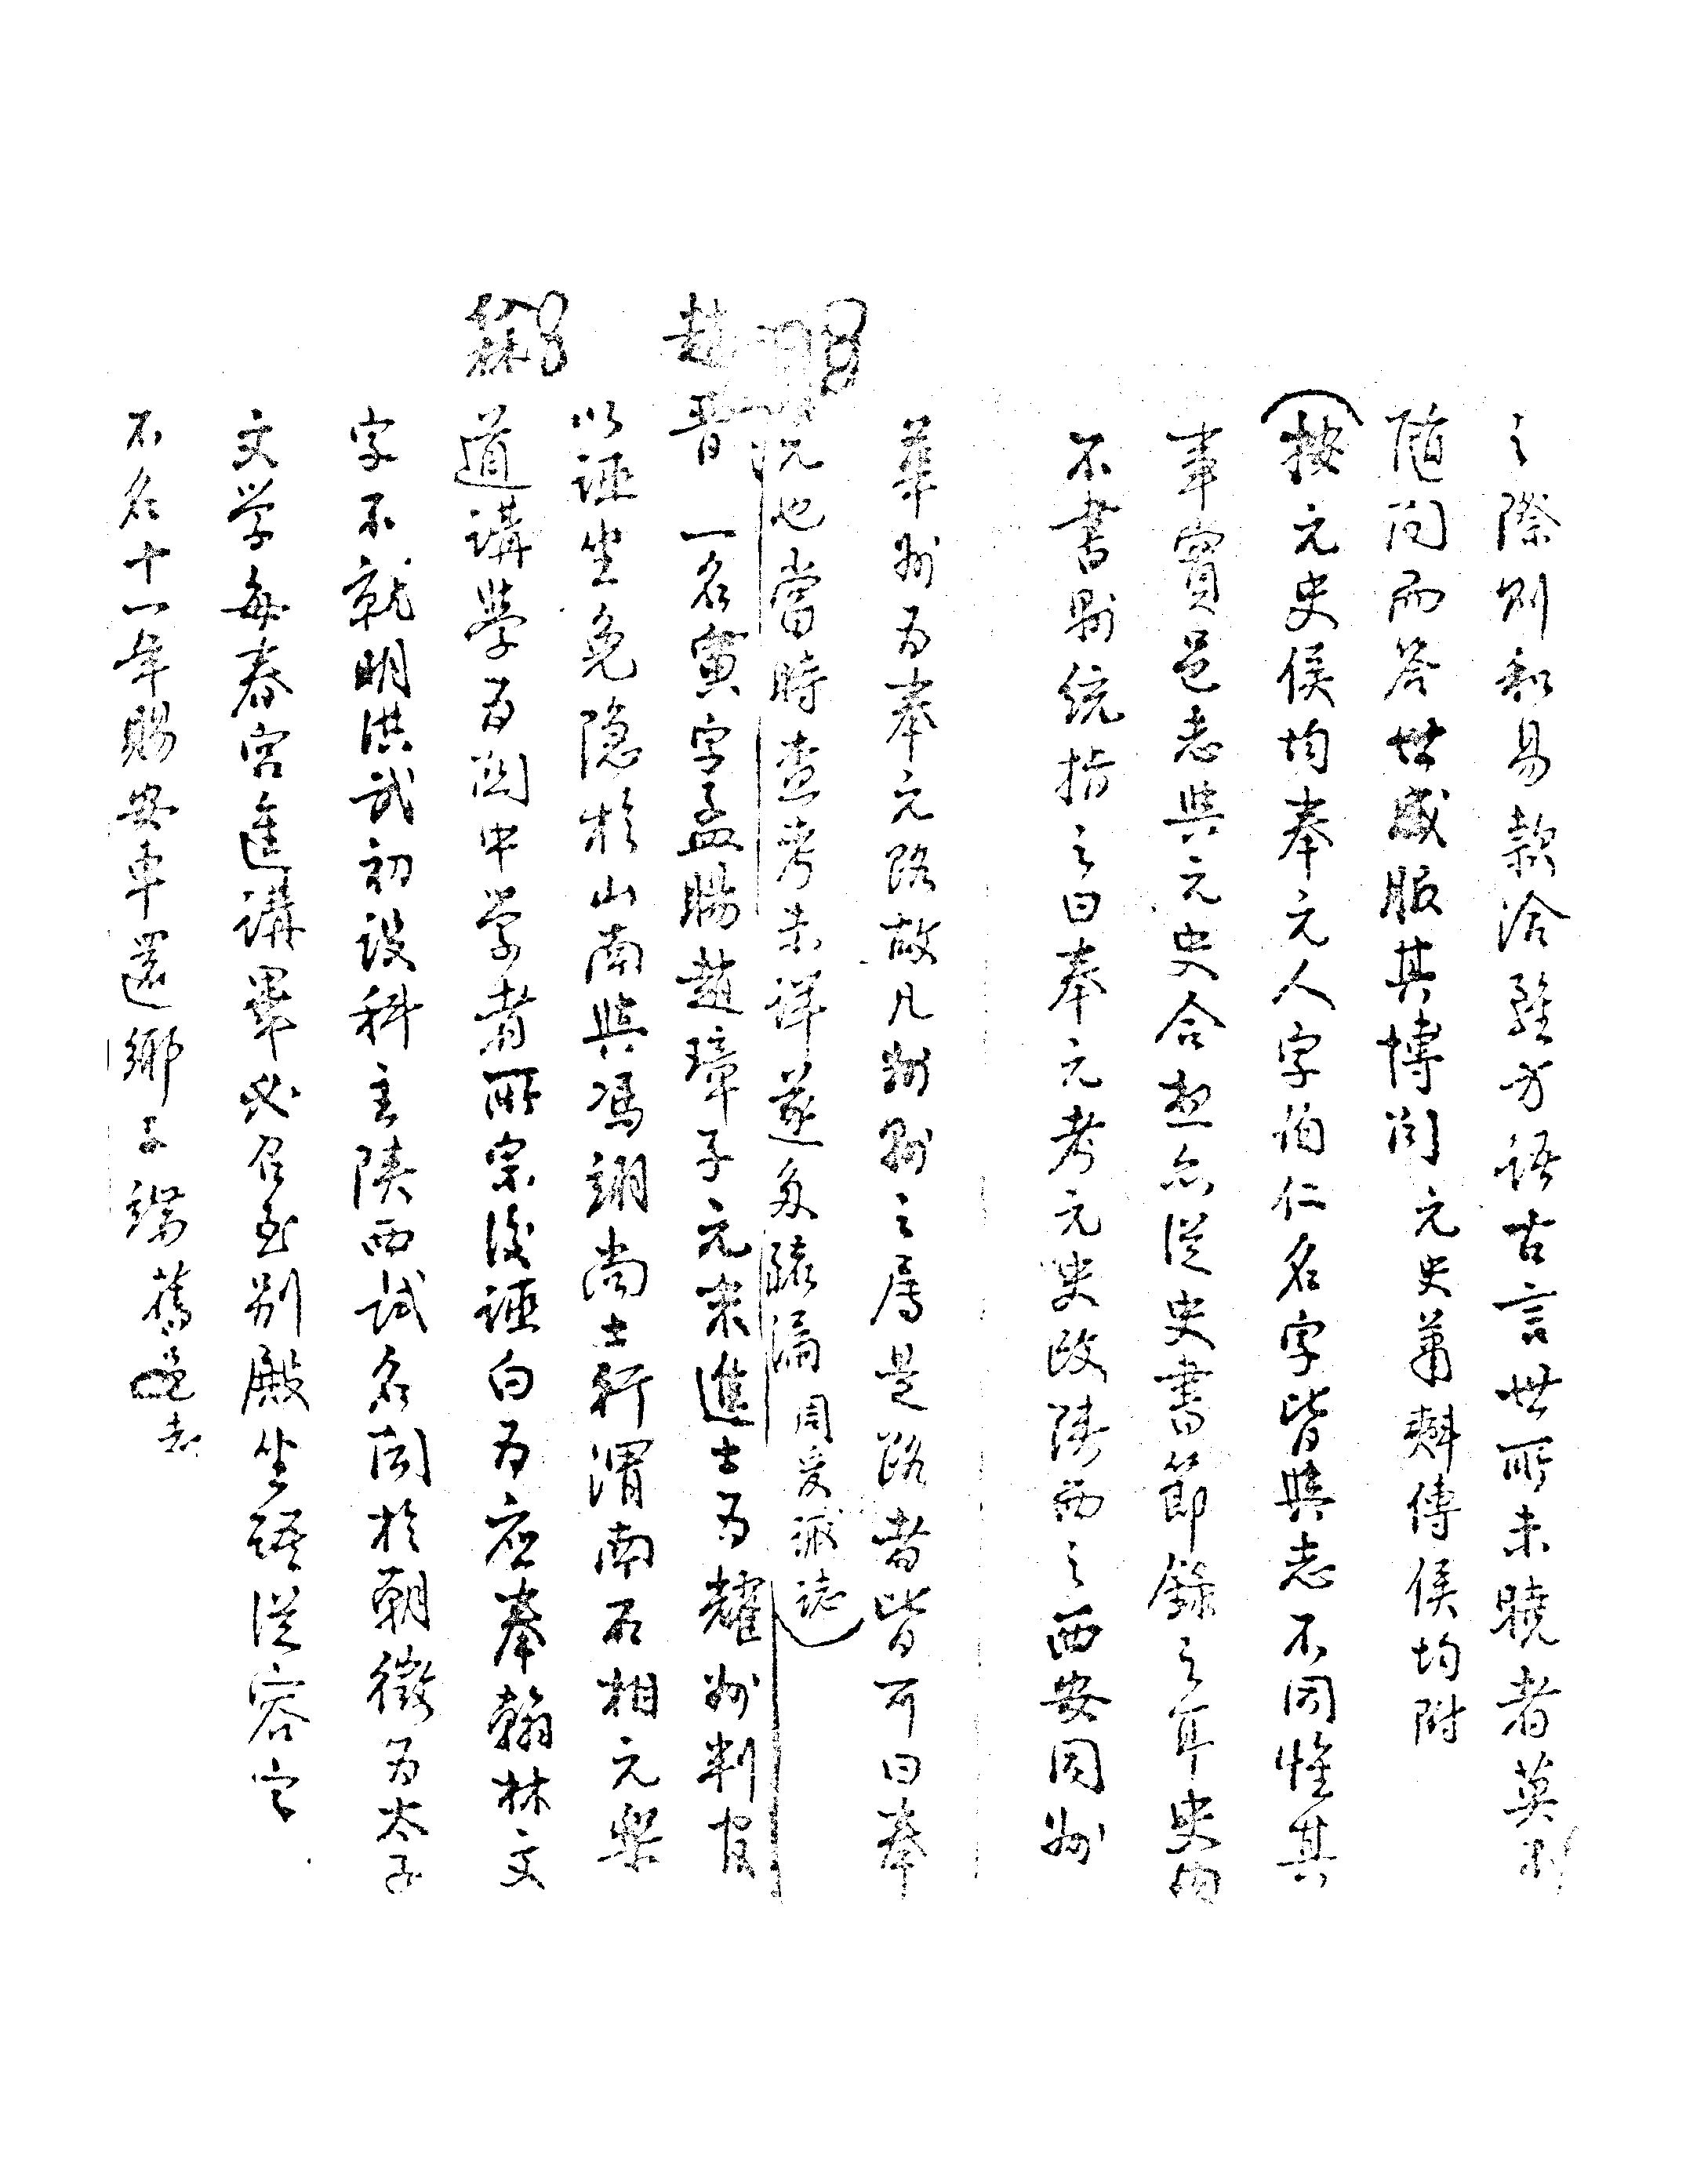 之際則和易款洽雖方語古言世所未曉者莫不
隨问而答世咸服其博闻 元史蕭𣂏傳侯均附
按元史侯均奉元人字伯仁名字皆與志不同惟其
事實邑志與元史合想亦從史書節錄之耳史内
不書縣统指之曰奉元考元史改陕西之西安同州
華州为奉元路故凡州縣之属是路者皆可曰奉
元也當時查考未详遂多疎漏 周爰諏誌
趙晋 一名寅字孟暘趙璋子元末進士为耀州判官
以誣坐免隐於山南與馮翊尚士行渭南石相元樂
道講學为関中学者所宗後誣白为应奉翰林文
字不就明洪武初设科主陕西试名闻於朝徵为太子
文学每春宫進講畢必召至别殿坐语從容字
不名十一年賜安車還鄉子瑞 舊邑志